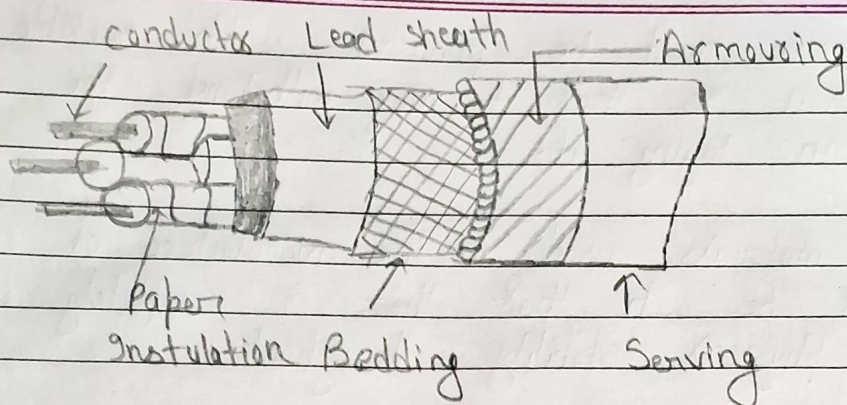 conductor Lead sheath Armouring
Paper
Instulation Bedding Serving